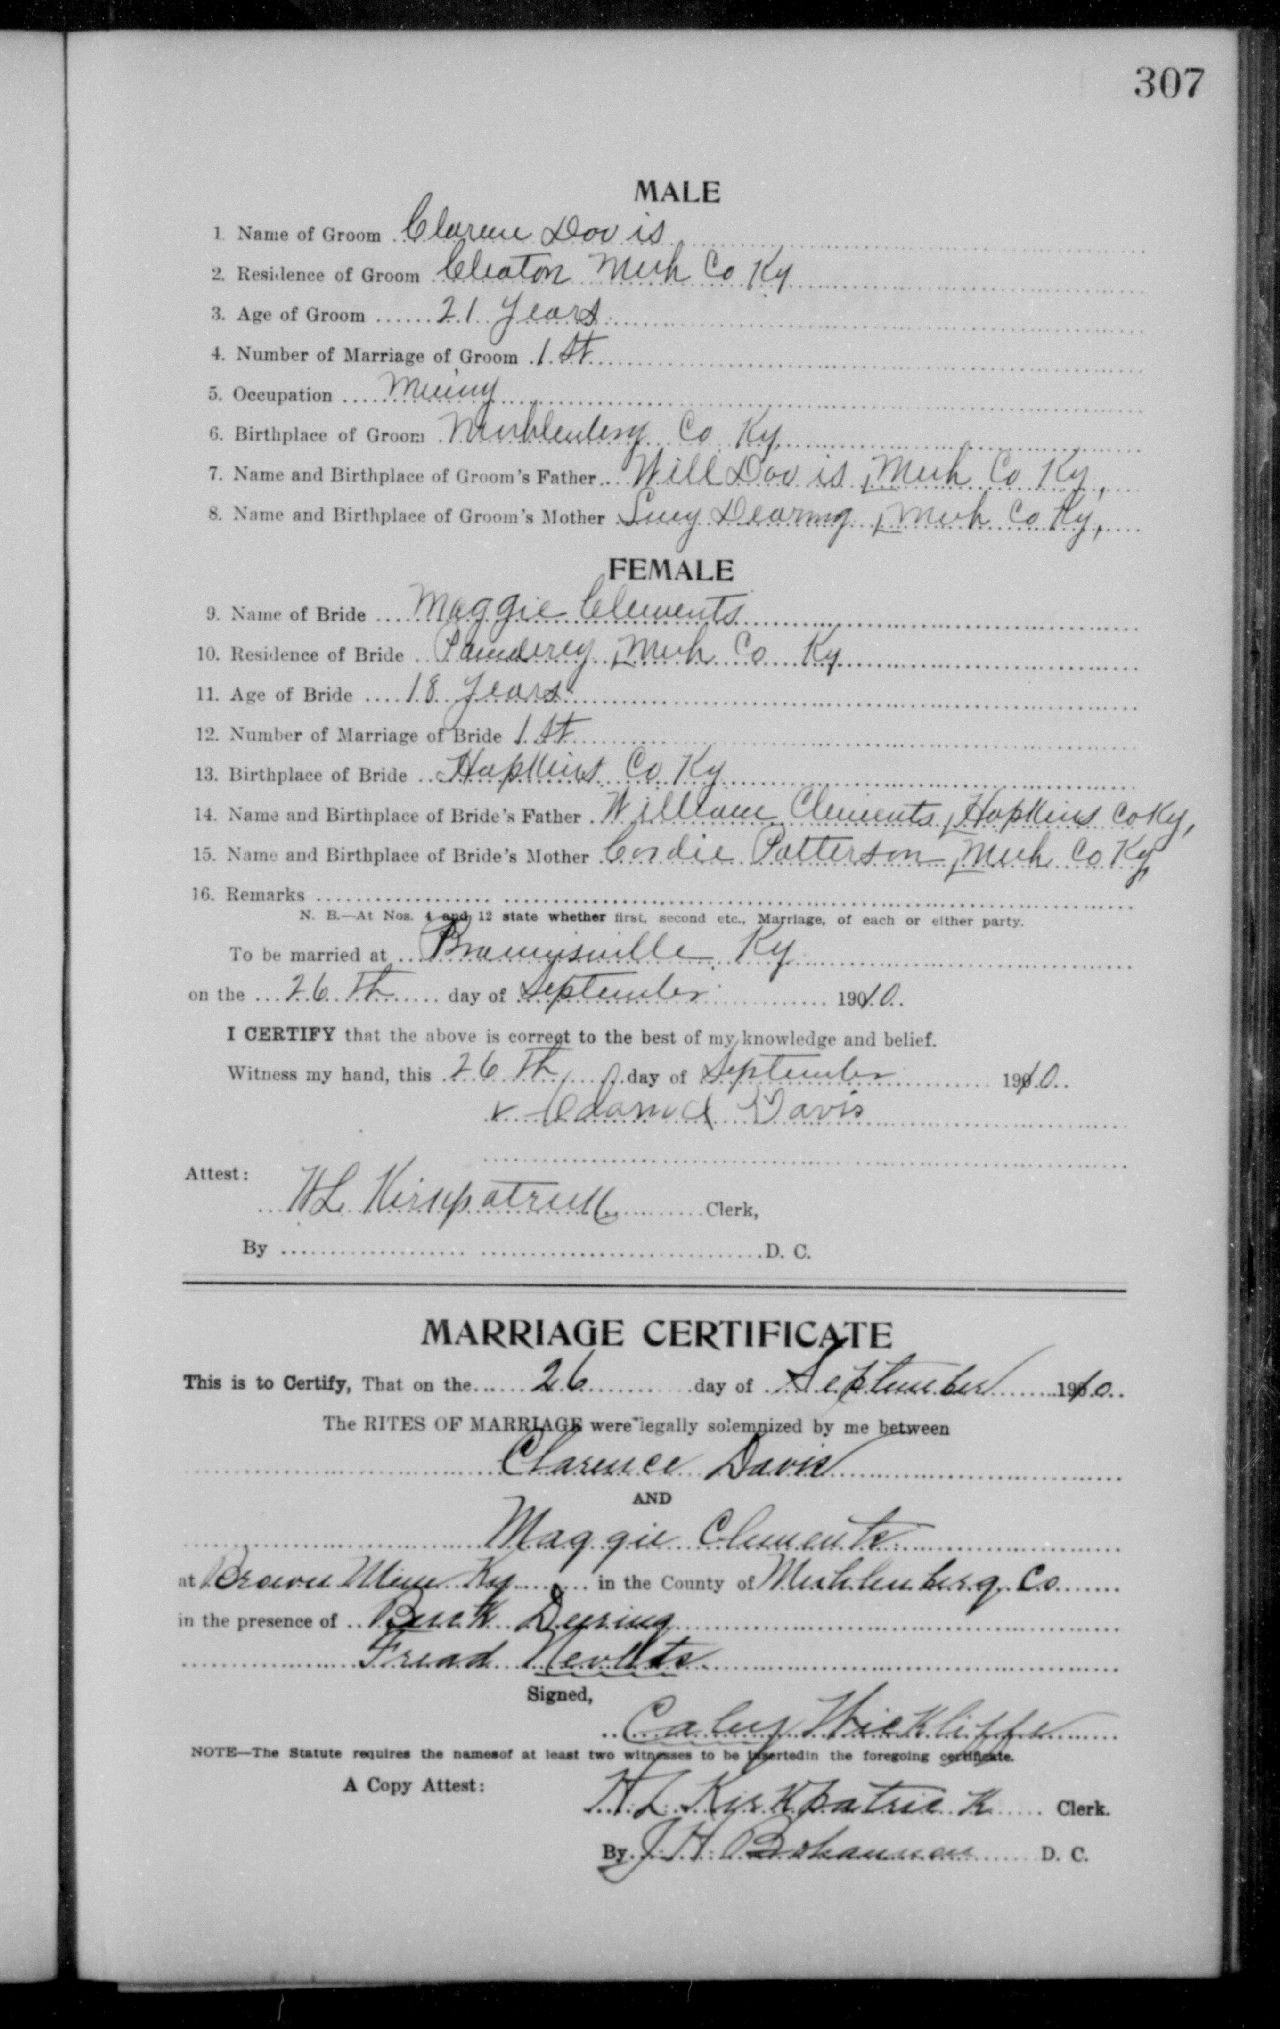 307
MALE
1. Name of Groom Clarence Davis
2. Residence of Groom Cleaton Muh Co Ky
3. Age of Groom 21 Years
4. Number of Marriage of Groom 1 St
5. Occupation Mining
6. Birthplace of Groom Muhlenberg Co Ky
7. Name and Birthplace of Groom's Father Will Davis, Muh Co Ky,
8. Name and Birthplace of Groom's Mother Lucy Dearing, Muh Co Ky,
FEMALE
9. Name of Bride Maggie Clements
10. Residence of Bride Muh Co Ky
11. Age of Bride 18 Years
12. Number of Marriage of Bride 1 St
13. Birthplace of Bride Hopkins Co Ky
14. Name and Birthplace of Bride's Father William Clements, Hopkins Co Ky,
15. Name and Birthplace of Bride's Mother Cordie Patterson, Muh Co Ky,
16. Remarks
N. B.—At Nos. 4 and 12 state whether first, second etc., Marriage, of each or either party.
To be married at Ky
on the 26 Th day of September 1910.
I CERTIFY that the above is correct to the best of my knowledge and belief.
Witness my hand, this 26 Th day of September 1910.
x Davis
Attest:
H L Kirkpatrick Clerk,
By D. C.
MARRIAGE CERTIFICATE
This is to Certify, That on the 26 day of September 1910.
The RITES OF MARRIAGE were legally solemnized by me between
Clarence Davis
AND
Maggie Clements
at Brown Mine Ky in the County of Muhlenberg Co
in the presence of Buck Deering
Fread
Signed,
Caley Wickliffe
NOTE—The Statute requires the namesof at least two witnesses to be insertedin the foregoing certificate.
A Copy Attest:
H L Kirkpatrick Clerk.
By J H Bohannon D. C.